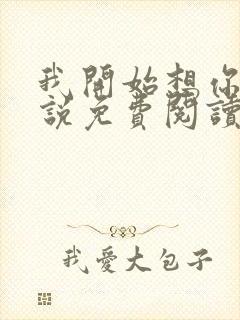 我開始想你
說免費閱讀
我愛大包子